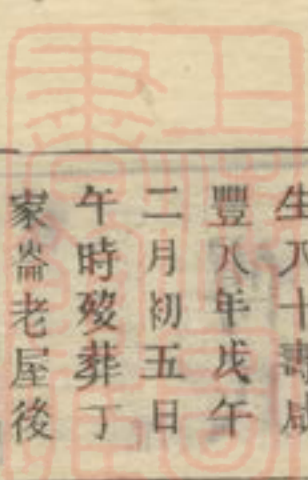 生八十壽咸
豐八年戊午
二月初五日
午時殁葬丁
家崙老屋後